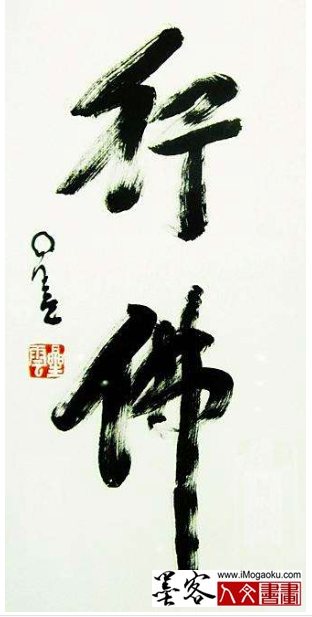 行佛
星雲
星雲
墨客
www.iMogaoku.com
人文書畫